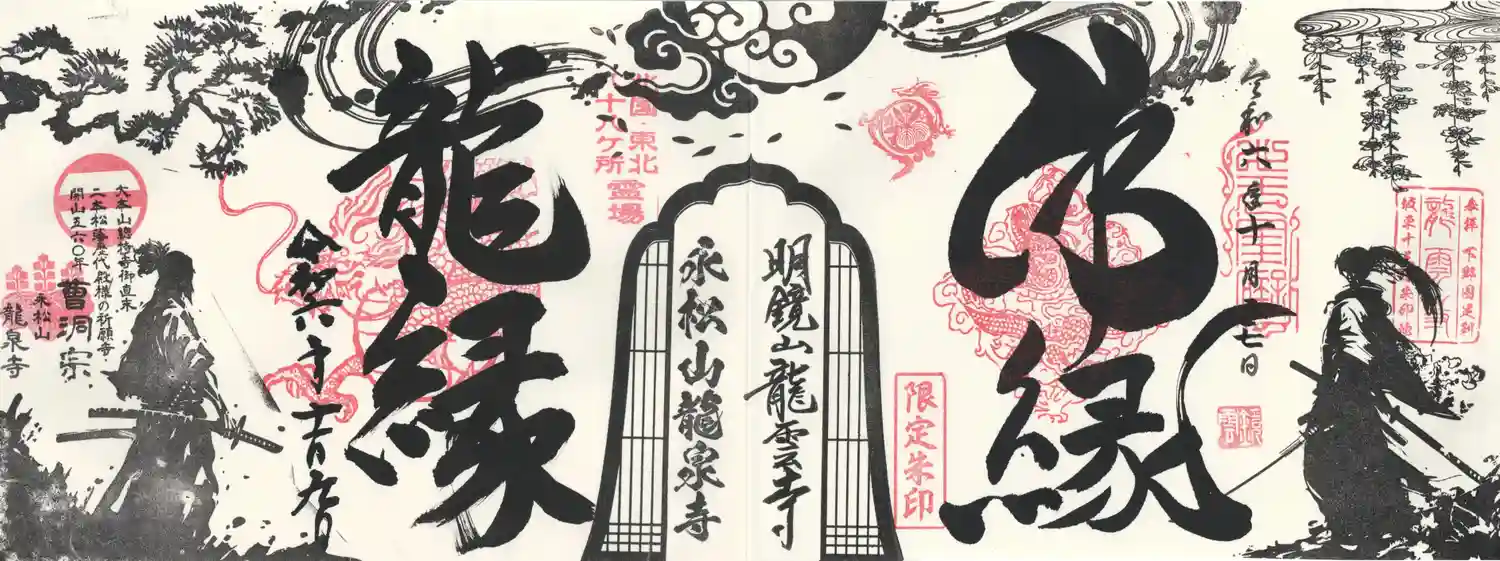 令和六年十月十七日
佛縁
限定朱印
明鏡山龍雲寺
永松山龍泉寺
東北
十八ヶ所
霊場
龍縁
令和六年十一月九日
大本山總持寺御直末
二本松藩歴代殿様の祈願寺
開山五六〇年 曹洞宗
永松山
龍泉寺